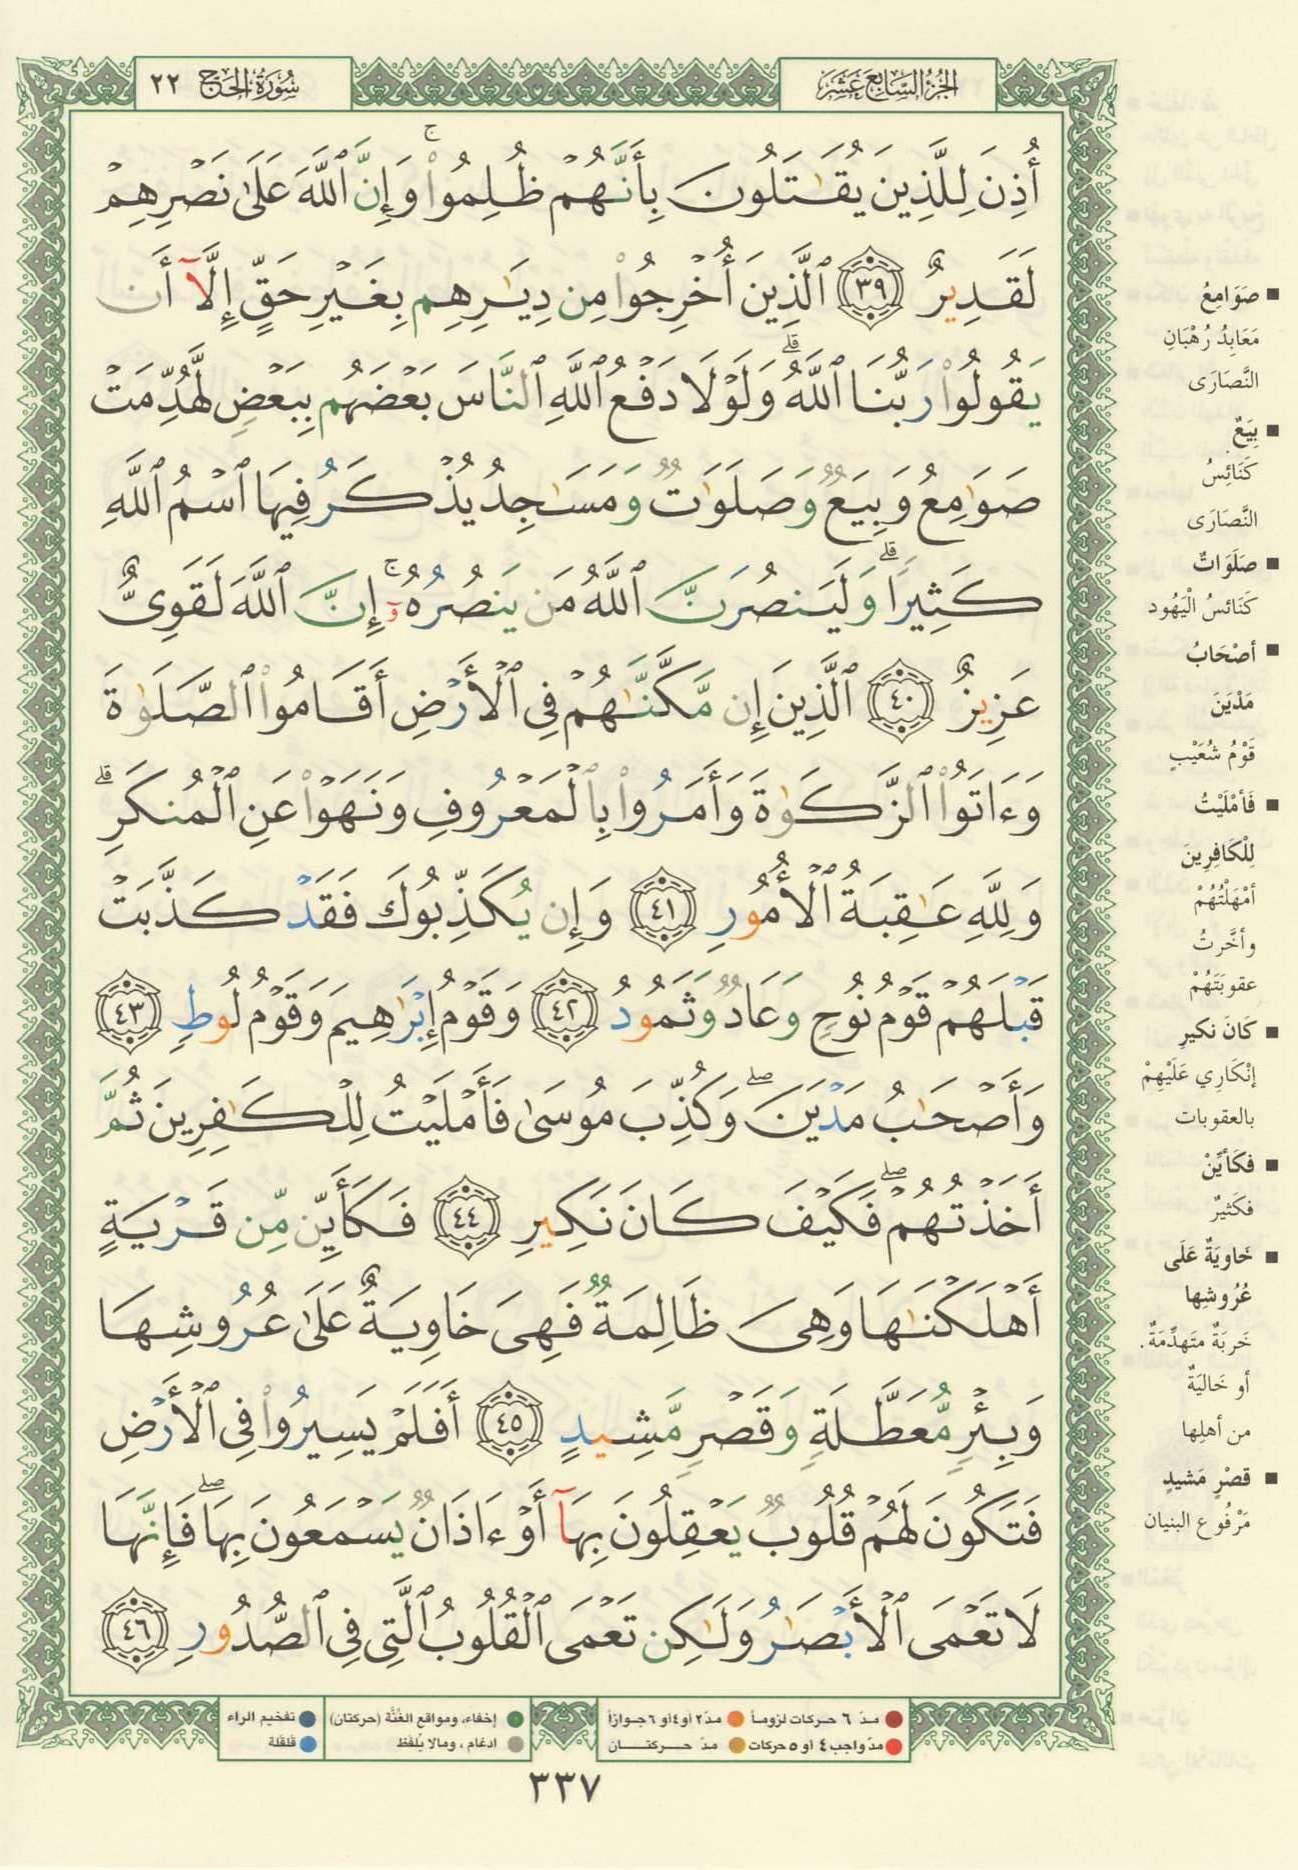 الجزء السابع عشر
سورة الحج ٢٢
أُذِنَ لِلَّذِينَ يُقَٰتَلُونَ بِأَنَّهُمْ ظُلِمُوا۟ ۚ وَإِنَّ ٱللَّهَ عَلَىٰ نَصْرِهِمْ
لَقَدِيرٌ ٣٩ ٱلَّذِينَ أُخْرِجُوا۟ مِن دِيَٰرِهِم بِغَيْرِ حَقٍّ إِلَّآ أَن
يَقُولُوا۟ رَبُّنَا ٱللَّهُ ۗ وَلَوْلَا دَفْعُ ٱللَّهِ ٱلنَّاسَ بَعْضَهُم بِبَعْضٍ لَّهُدِّمَتْ
صَوَٰمِعُ وَبِيَعٌ وَصَلَوَٰتٌ وَمَسَٰجِدُ يُذْكَرُ فِيهَا ٱسْمُ ٱللَّهِ
كَثِيرًا ۗ وَلَيَنصُرَنَّ ٱللَّهُ مَن يَنصُرُهُۥٓ ۚ إِنَّ ٱللَّهَ لَقَوِىٌّ
عَزِيزٌ ٤٠ ٱلَّذِينَ إِن مَّكَّنَّٰهُمْ فِى ٱلْأَرْضِ أَقَامُوا۟ ٱلصَّلَوٰةَ
وَءَاتَوُا۟ ٱلزَّكَوٰةَ وَأَمَرُوا۟ بِٱلْمَعْرُوفِ وَنَهَوْا۟ عَنِ ٱلْمُنكَرِ ۗ
وَلِلَّهِ عَٰقِبَةُ ٱلْأُمُورِ ٤١ وَإِن يُكَذِّبُوكَ فَقَدْ كَذَّبَتْ
قَبْلَهُمْ قَوْمُ نُوحٍ وَعَادٌ وَثَمُودُ ٤٢ وَقَوْمُ إِبْرَٰهِيمَ وَقَوْمُ لُوطٍ ٤٣
وَأَصْحَٰبُ مَدْيَنَ ۖ وَكُذِّبَ مُوسَىٰ فَأَمْلَيْتُ لِلْكَٰفِرِينَ ثُمَّ
أَخَذْتُهُمْ ۖ فَكَيْفَ كَانَ نَكِيرِ ٤٤ فَكَأَيِّن مِّن قَرْيَةٍ
أَهْلَكْنَٰهَا وَهِىَ ظَالِمَةٌ فَهِىَ خَاوِيَةٌ عَلَىٰ عُرُوشِهَا
وَبِئْرٍ مُّعَطَّلَةٍ وَقَصْرٍ مَّشِيدٍ ٤٥ أَفَلَمْ يَسِيرُوا۟ فِى ٱلْأَرْضِ
فَتَكُونَ لَهُمْ قُلُوبٌ يَعْقِلُونَ بِهَآ أَوْ ءَاذَانٌ يَسْمَعُونَ بِهَا ۖ فَإِنَّهَا
لَا تَعْمَى ٱلْأَبْصَٰرُ وَلَٰكِن تَعْمَى ٱلْقُلُوبُ ٱلَّتِى فِى ٱلصُّدُورِ ٤٦
صَوَامِعُ
مَعَابِدُ رُهْبَانِ
النَّصَارَى
بِيَعٌ
كَنَائِسُ
النَّصَارَى
صَلَوَاتٌ
كَنَائسُ الْيَهُود
أصْحَابُ
مَدْيَنَ
قَوْمُ شُعَيْبٍ
فَأمْلَيْتُ
لِلْكَافِرِينَ
أمْهَلْتُهُمْ
وأخَّرتُ
عقوبَتَهُمْ
كَانَ نكيرِ
إنْكَارِي عَلَيْهِمْ
بالعقوبات
فكَأيِّنْ
فكَثيرٌ
خَاوِيَةٌ عَلَى
عُرُوشِها
خَرِبَةٌ متَهدِّمَةٌ.
أو خَاليَةٌ
من أهلِها
قصْرٍ مَشيدٍ
مَرْفُوعِ البنيان
مدّ ٦ حركات لزوماً
مدّ ٢ أو ٤ أو ٦ جوازاً
إخفاء، ومواقع الغُنَّة (حركتان)
تفخيم الراء
مدّ واجب ٤ أو ٥ حركات
مدّ حركتان
ادغام ، ومالا يُلفَظ
قلقلة
٣٣٧